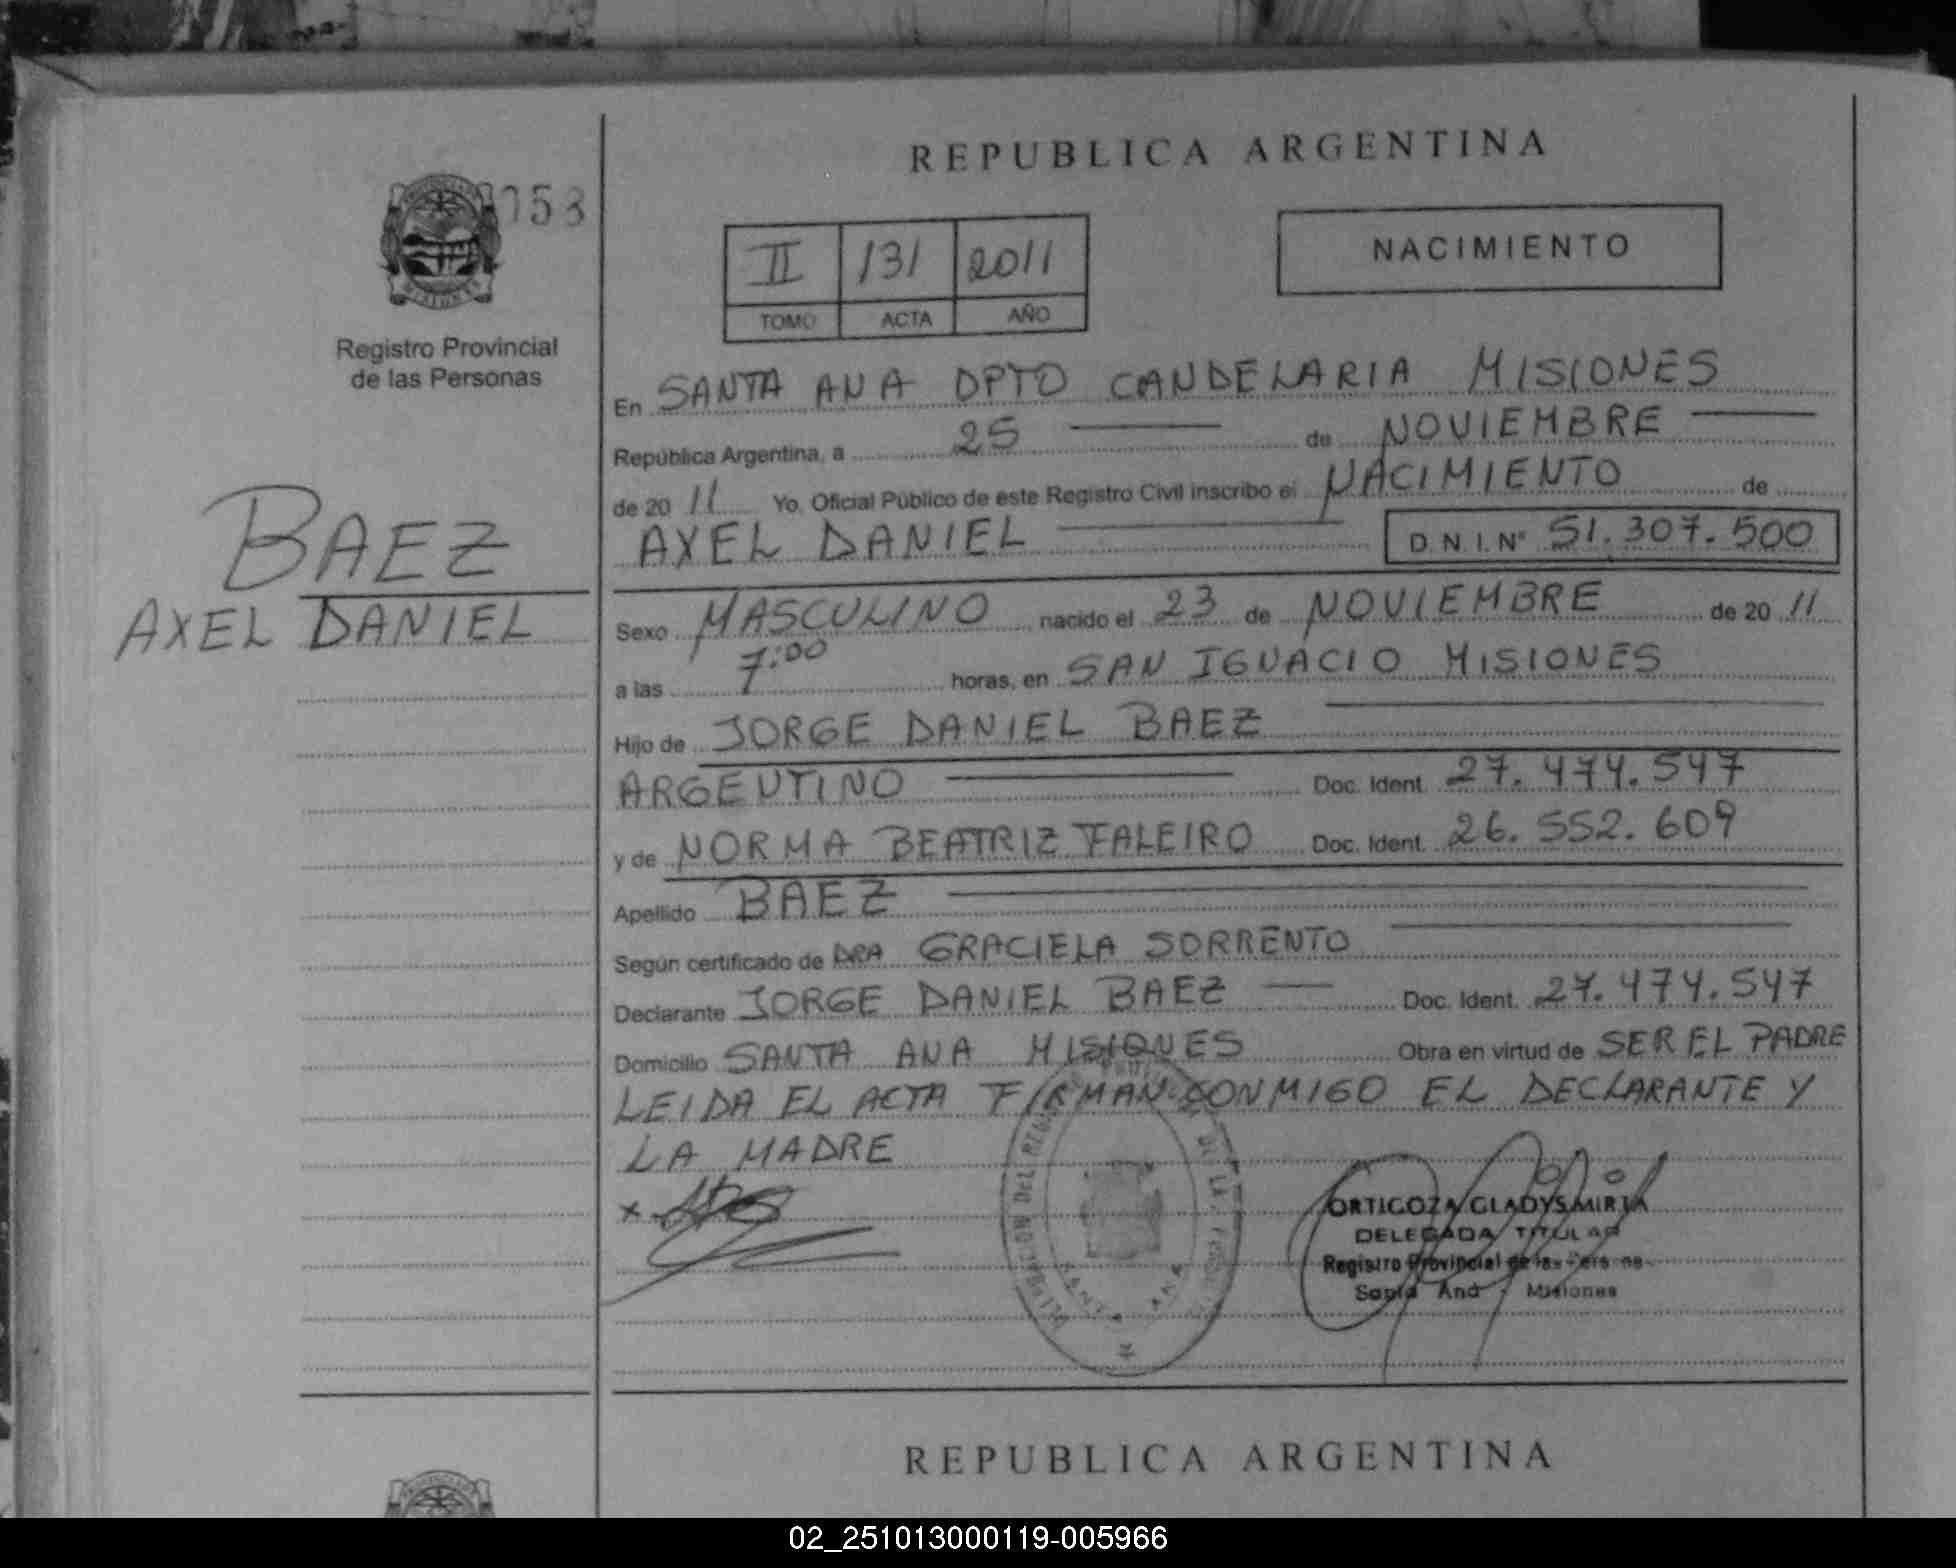 REPUBLICA ARGENTINA
058
II 131 2011
TOMO ACTA AÑO
NACIMIENTO
MISIONES
Registro Provincial
de las Personas
En SANTA ANA DPTO CANDELARIA MISIONES
República Argentina, a 25 de NOVIEMBRE
de 20 11 Yo, Oficial Público de este Registro Civil inscribo el NACIMIENTO de
AXEL DANIEL D.N.I.Nº 51.307.500
BAEZ
AXEL DANIEL
Sexo MASCULINO nacido el 23 de NOVIEMBRE de 20 11
a las 7:00 horas, en SAN IGNACIO MISIONES
Hijo de JORGE DANIEL BAEZ
ARGENTINO Doc. Ident. 27.474.547
y de NORMA BEATRIZ FALEIRO Doc. Ident. 26.552.609
Apellido BAEZ
Según certificado de DRA GRACIELA SORRENTO
Declarante JORGE DANIEL BAEZ Doc. Ident. 27.474.547
Domicilio SANTA ANA MISIONES Obra en virtud de SER EL PADRE
LEIDA EL ACTA FIRMAN CONMIGO EL DECLARANTE Y
LA MADRE
DELEGACION DEL REGISTRO DE LAS
SANTA ANA
ORTIGOZA GLADYS MIRTA
DELEGADA TITULAR
Registro Provincial de las Personas
Santa Ana - Misiones
REPUBLICA ARGENTINA
02_251013000119-005966